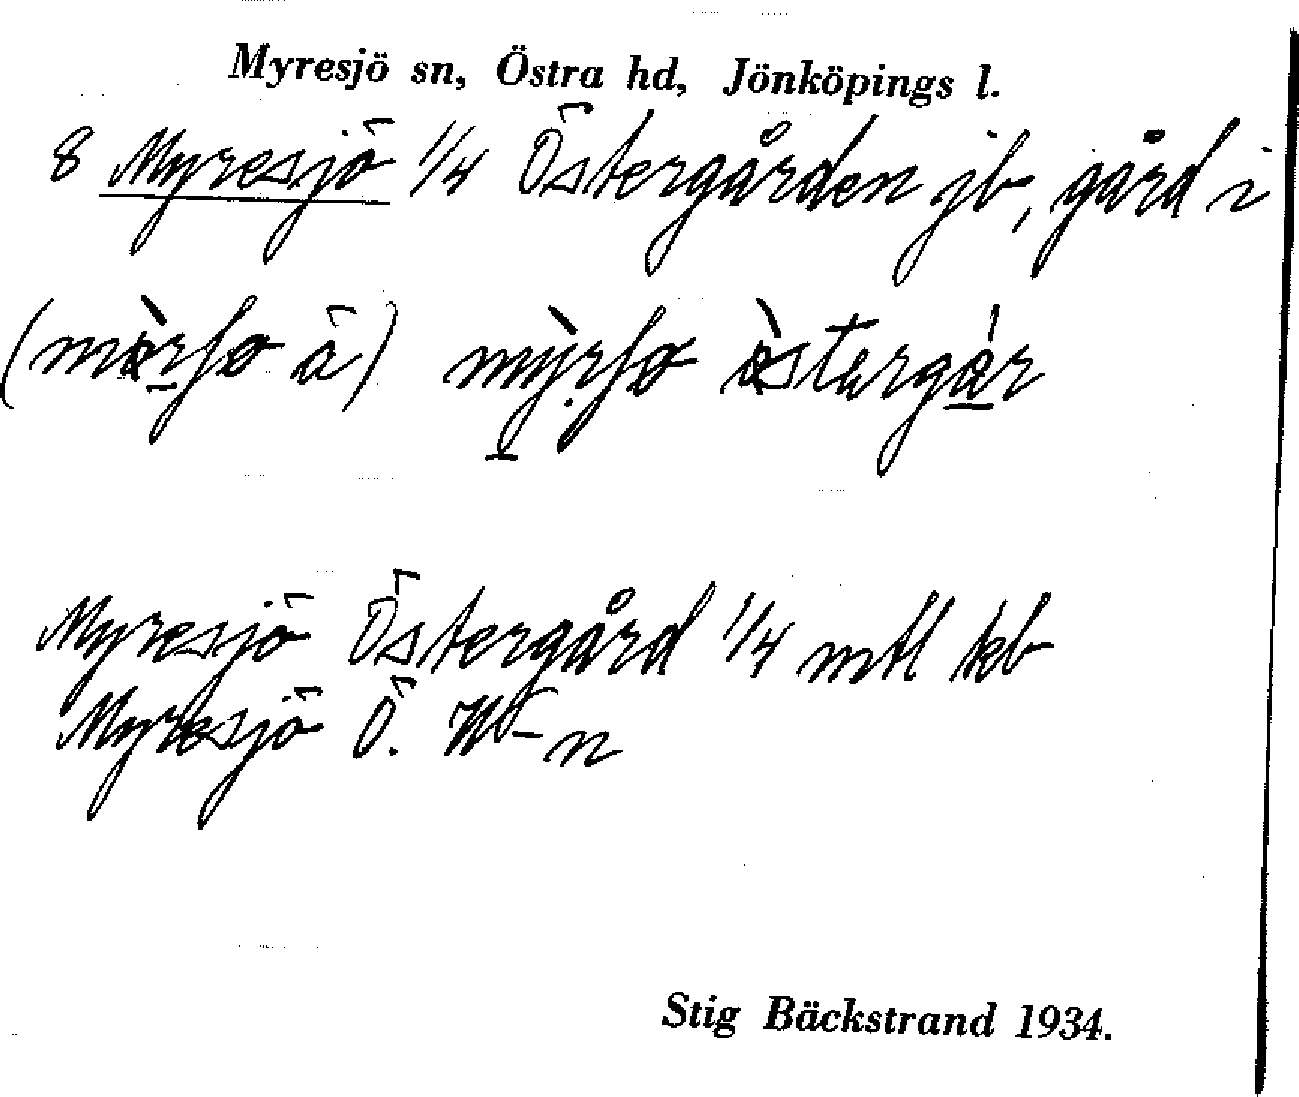 Myresjö sn, Östra hd, Jönköpings l.
8 Myresjö 1/4 Östergården jb, gård i
Myresjö Östergård 1/4 mtl kb
Myresjö Ö. W-n
Stig Bäckstrand 1934.